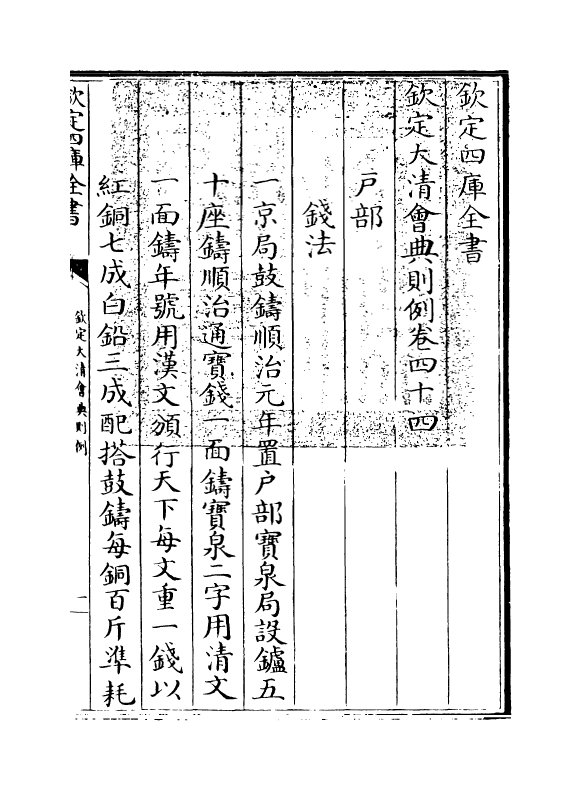 欽定四庫全書
欽定大清會典則例卷四十四
戸部
錢法
一京局鼓鑄順治元年置户部寶泉局設鑪五
十座鑄順治通寶錢一面鑄寶泉二字用清文
一面鑄年號用漢文頒行天下每文重一錢以
紅銅七成白鉛三成配搭鼓鑄每銅百斤準耗
欽定四庫全書
欽定大清會典則例
一